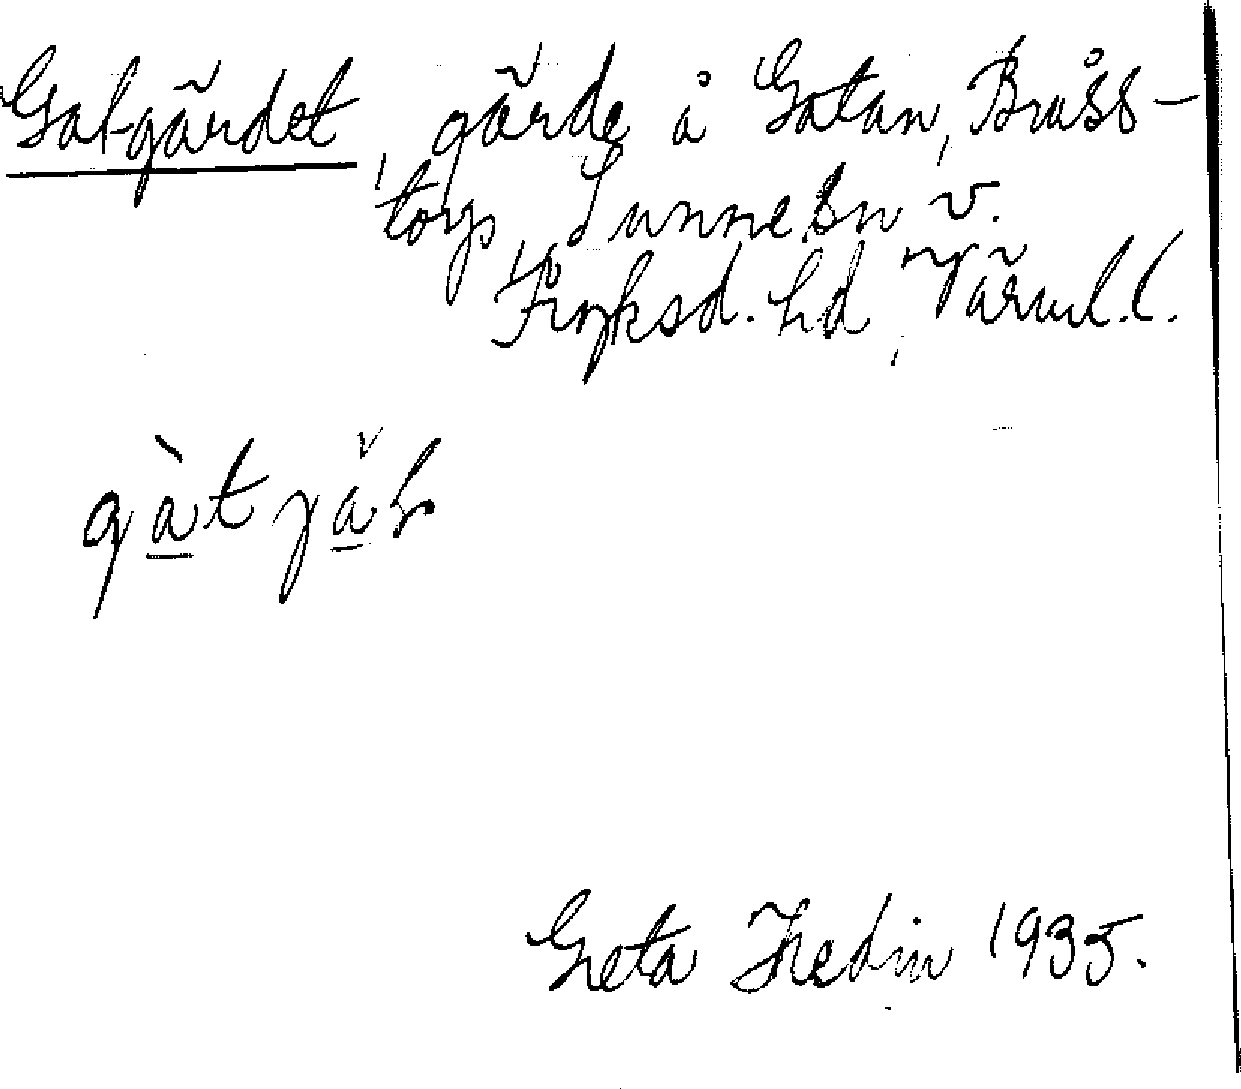 Gatgärdet, gärde å Gatan, Bråss-
torp, Sunne sn v.
Fryksd. hd, Värml. l.
gàt jäɫ
Greta Hedin 1935.